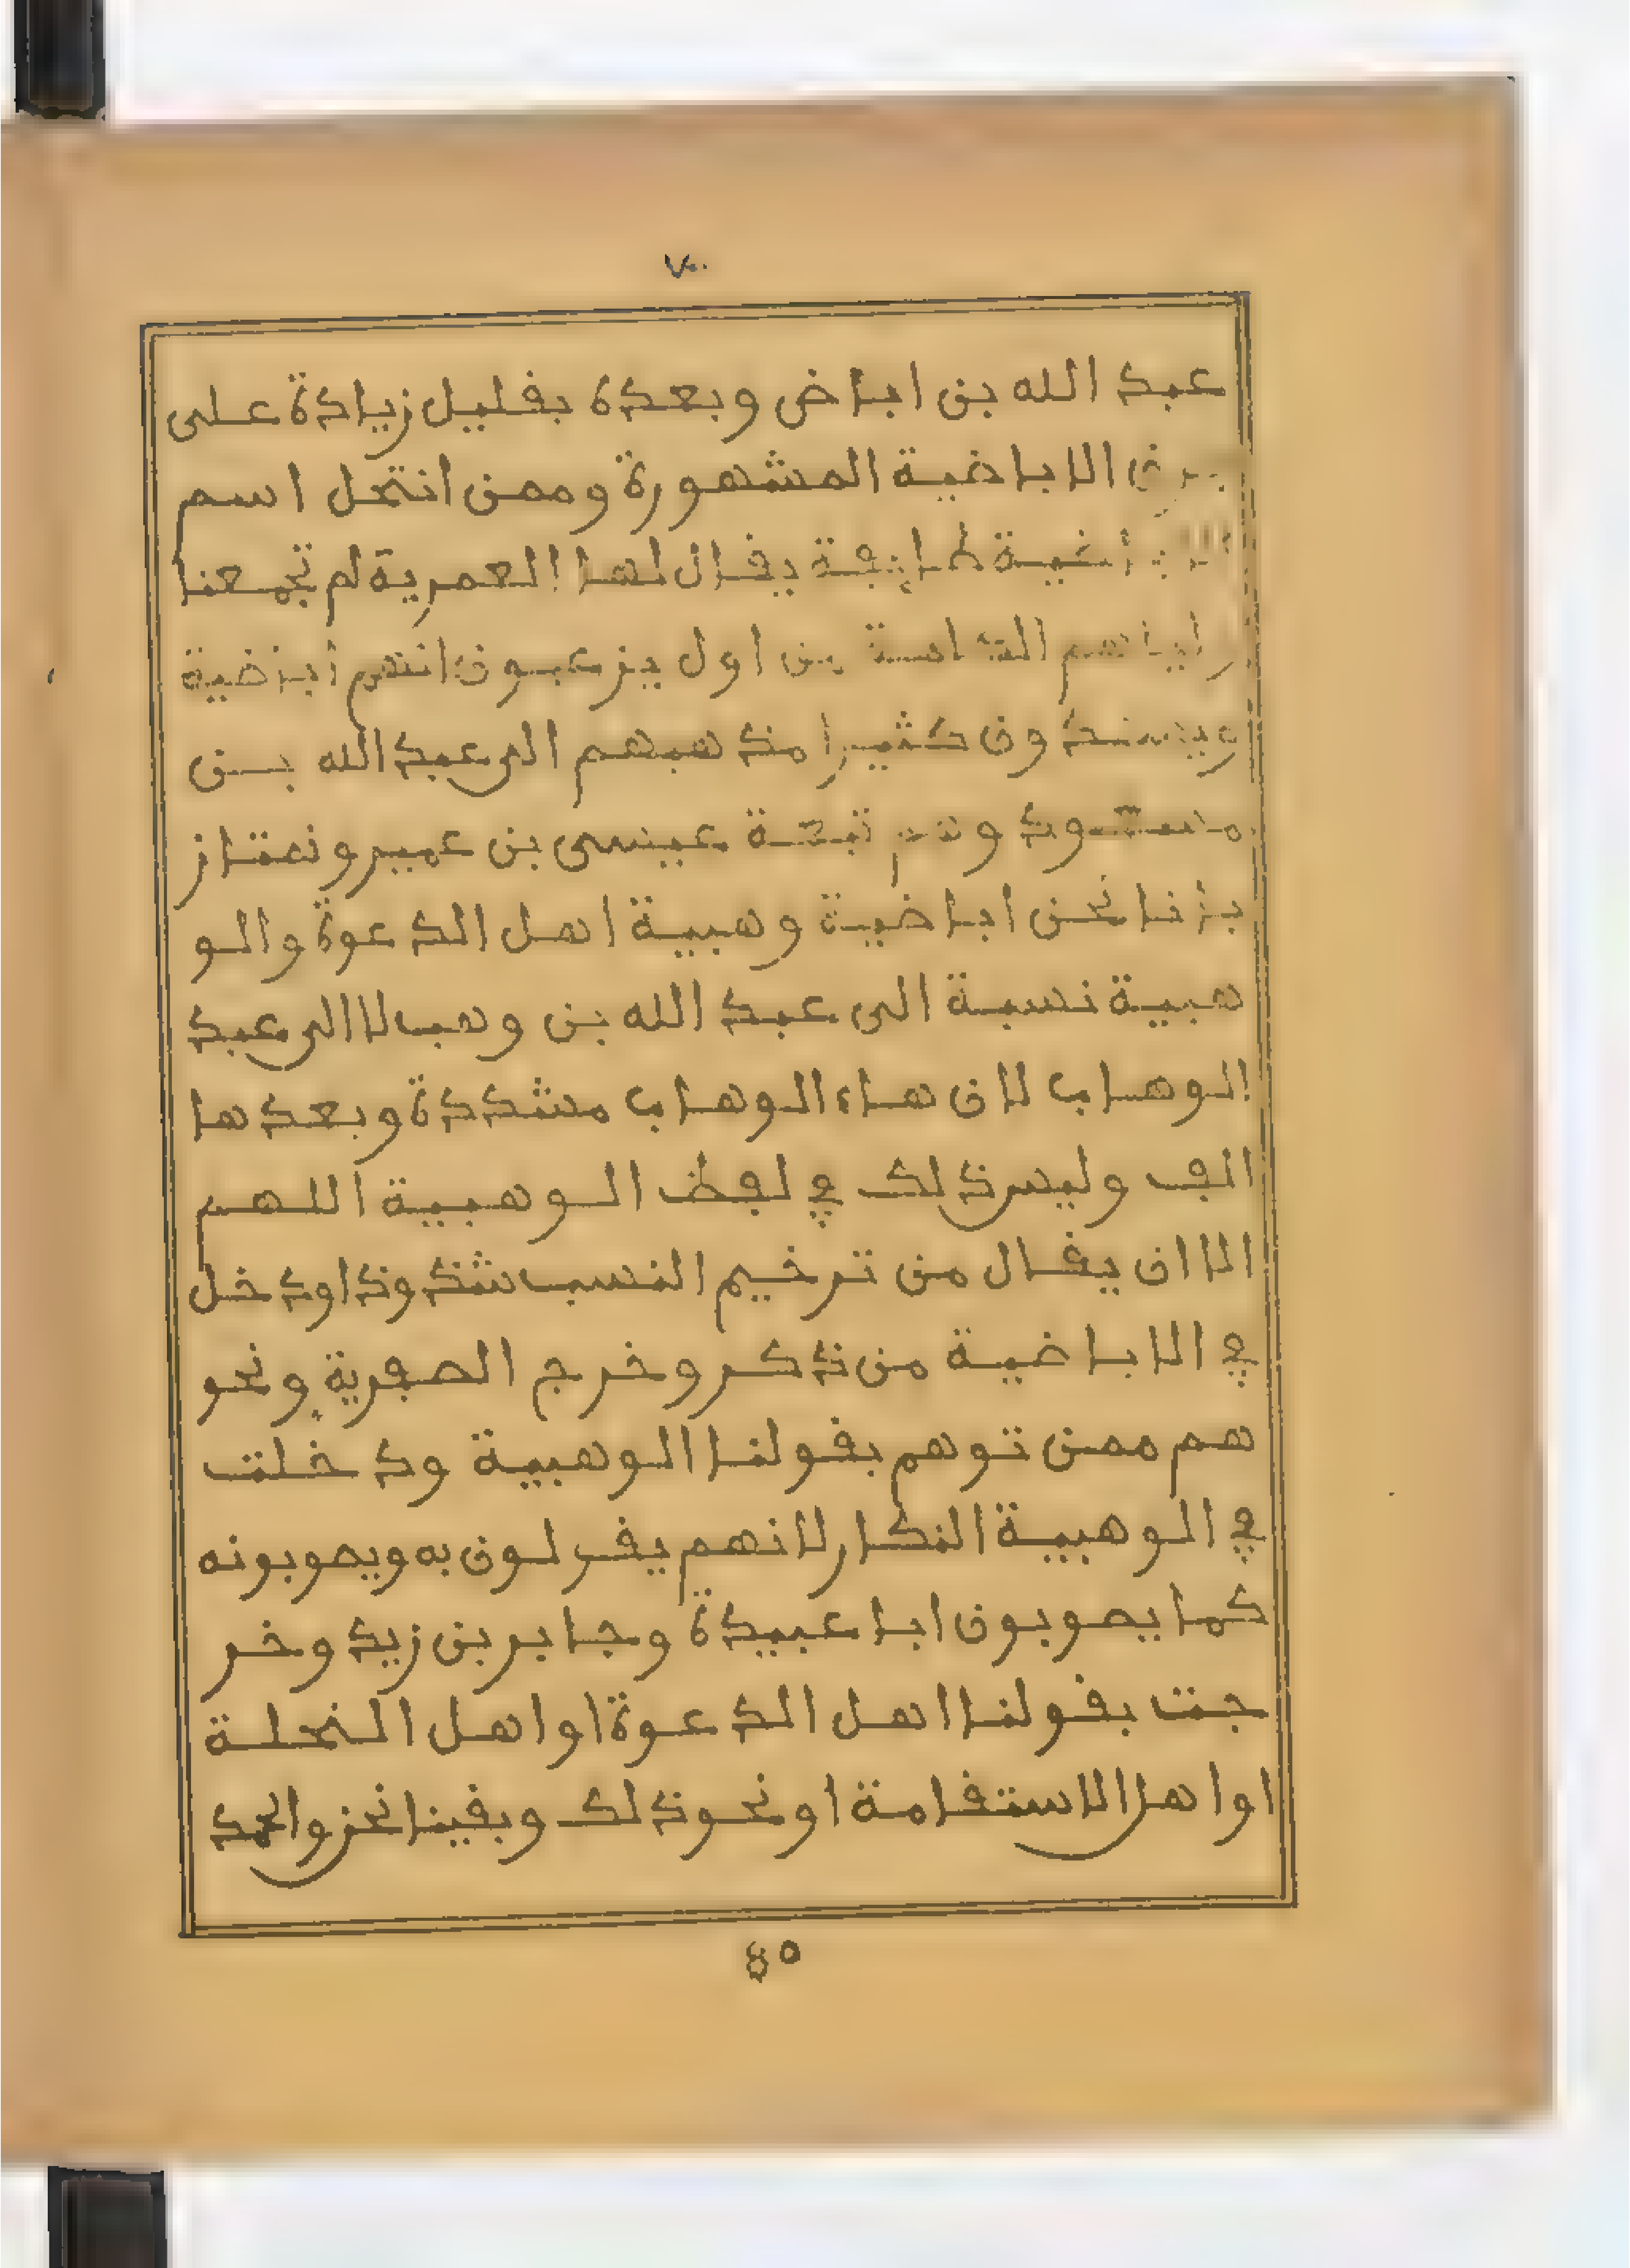 ٧٠
عبد الله بن اباض وبعده بقليل زيادة على
الاباضية المشهورة وممن انتحل اسم
يقال لها العمرية لم تجمعنا
بن اول يزعمون انهم أباضية
ويسندون كثيرا مذهبهم الى عبد الله بن
مسعود وهم تبعة عيسى بن عمير ونمتاز
بأنا نحن اباضية وهبية اهل الدعوة والو
هبية نسبة الى عبد الله بن وهب لا الى عبد
الوهاب لان هاء الوهاب مشددة وبعدها
الف وليس ذلك في لفظ الوهبية اللهم
الا ان يقال من ترخيم النسب شذوذا ودخل
في الاباضية من ذكر وخرج الصفرية ونحو
هم ممن توهم بقولنا الوهبية ودخلت
في الوهبية النكار لانهم يقولون به ويصوبونه
كما يصوبون ابا عبيدة وجابر بن زيد وخر
جت بقولنا اهل الدعوة او اهل النحلة
او اهل الاستقامة او نحو ذلك وبقينا نحن والحمد